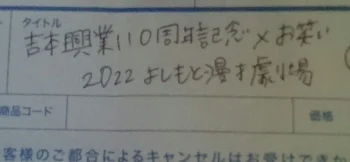 タイトル
吉本興業110周年記念×お笑い
2022よしもと漫才劇場
商品コード
価格
客様のご都合によるキャンセルはお受けできか